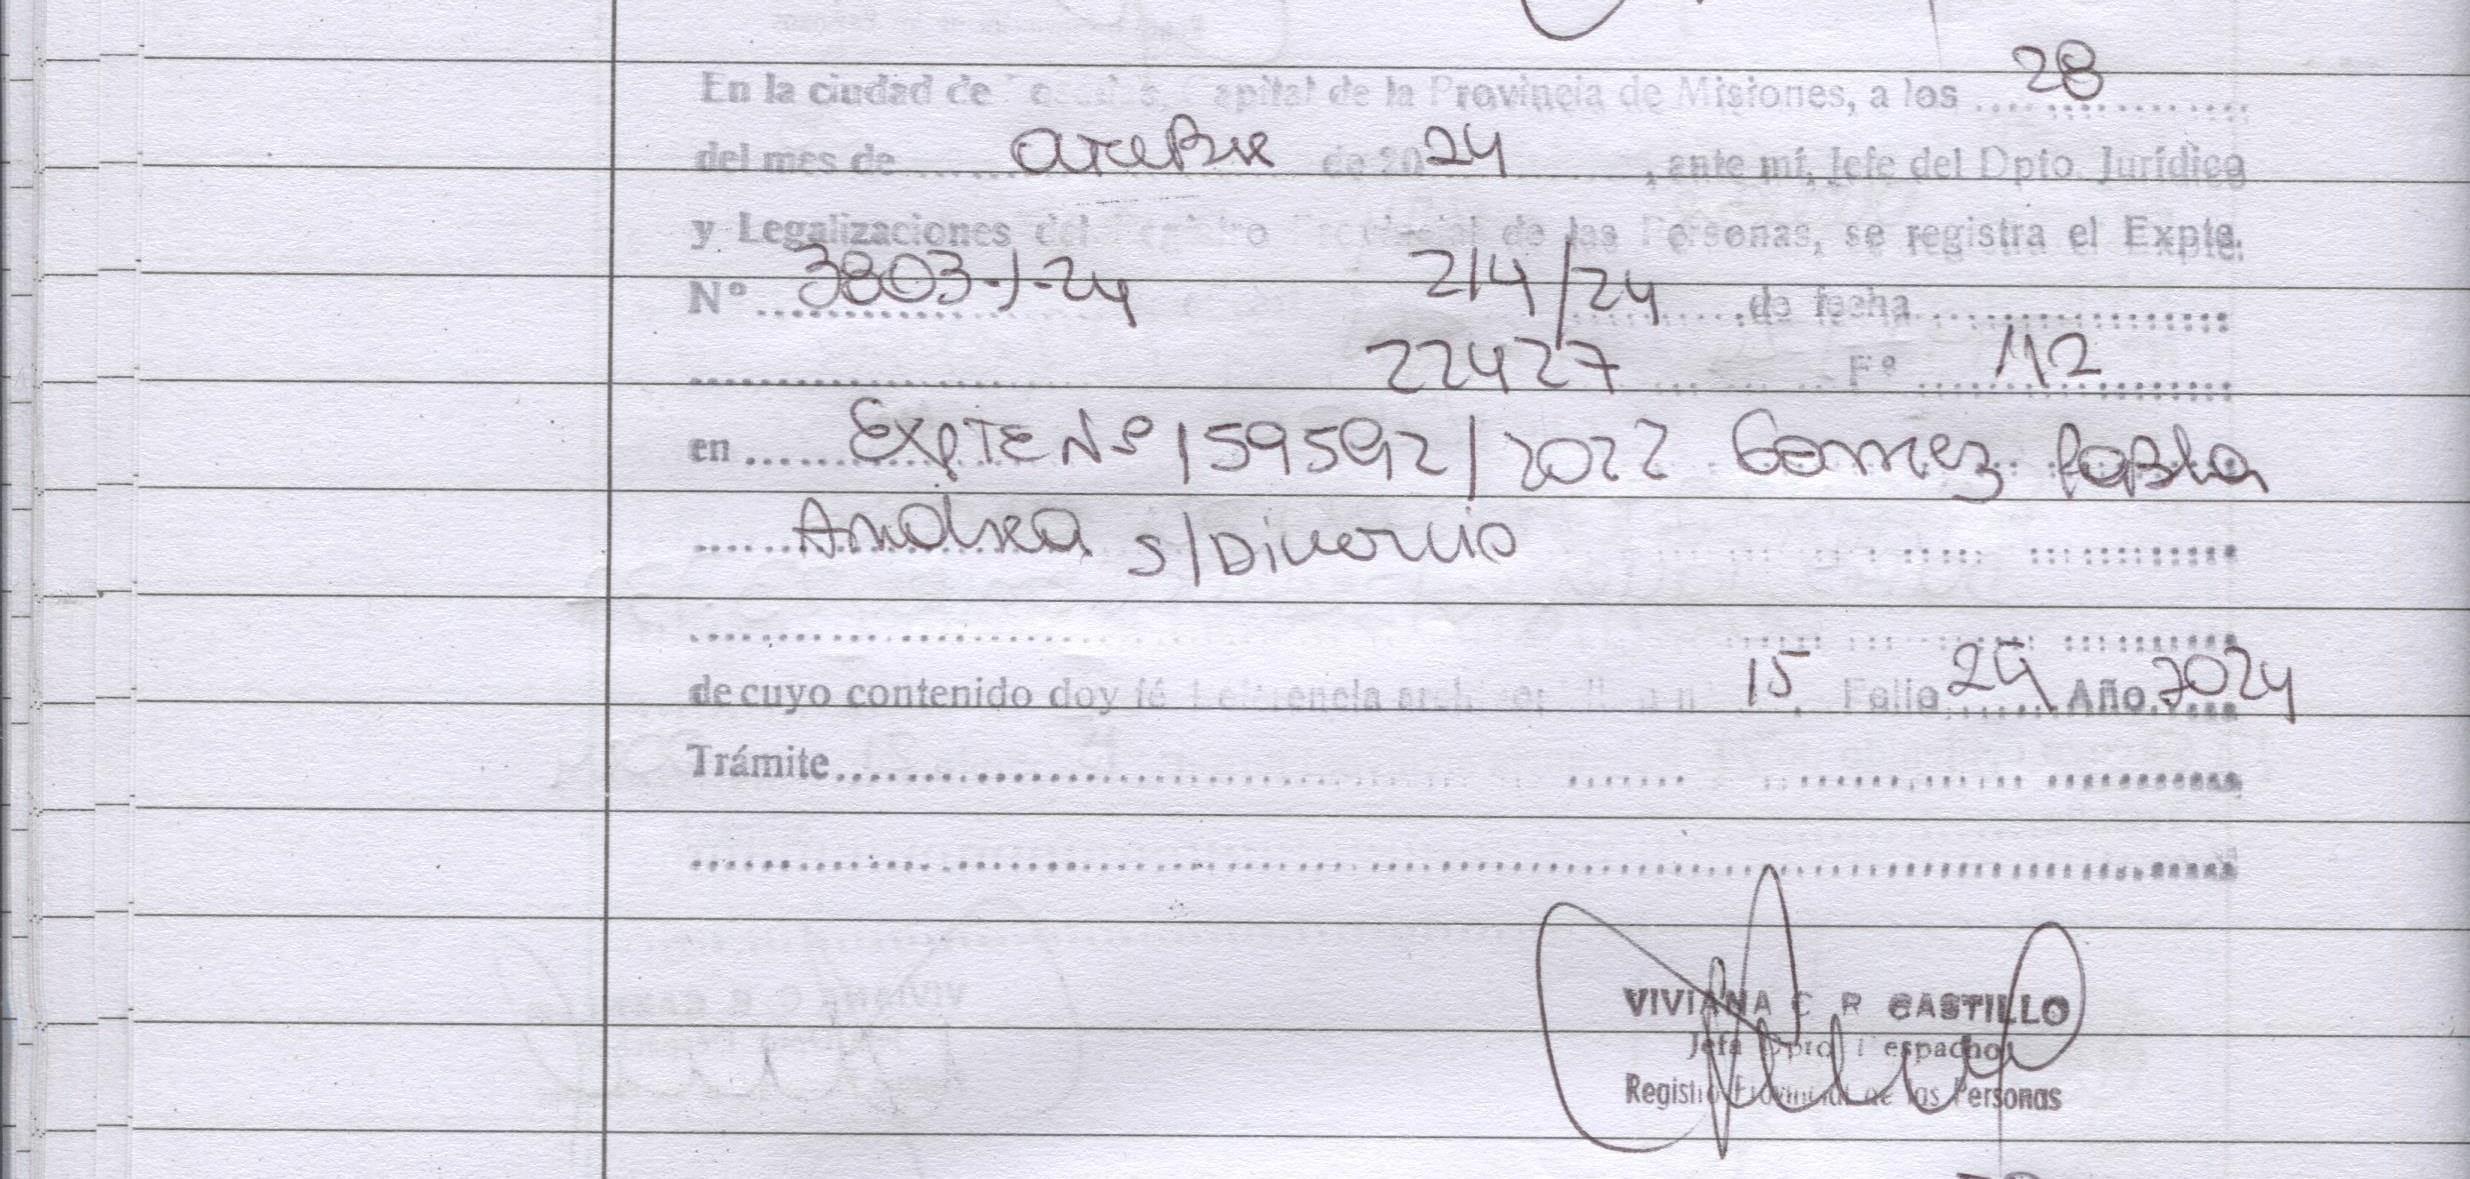 En la ciudad de Capital de la Provincia de Misiones, a los 28
del mes de octubre de 2024, ante mí, Jefe del Dpto. Jurídico
y Legalizaciones del Registro Provincial de las Personas, se registra el Expte.
Nº 3803-J-24 214/24 de fecha
22427 Fº 112
en Expte Nº 159592/2022 Gomez Pabla
Andrea s/Divorcio
de cuyo contenido doy fé 15 Folio 29 Año 2024
Trámite
VIVIANA C R CASTILLO
Jefa Dpto Despacho
Registro Provincial de las Personas